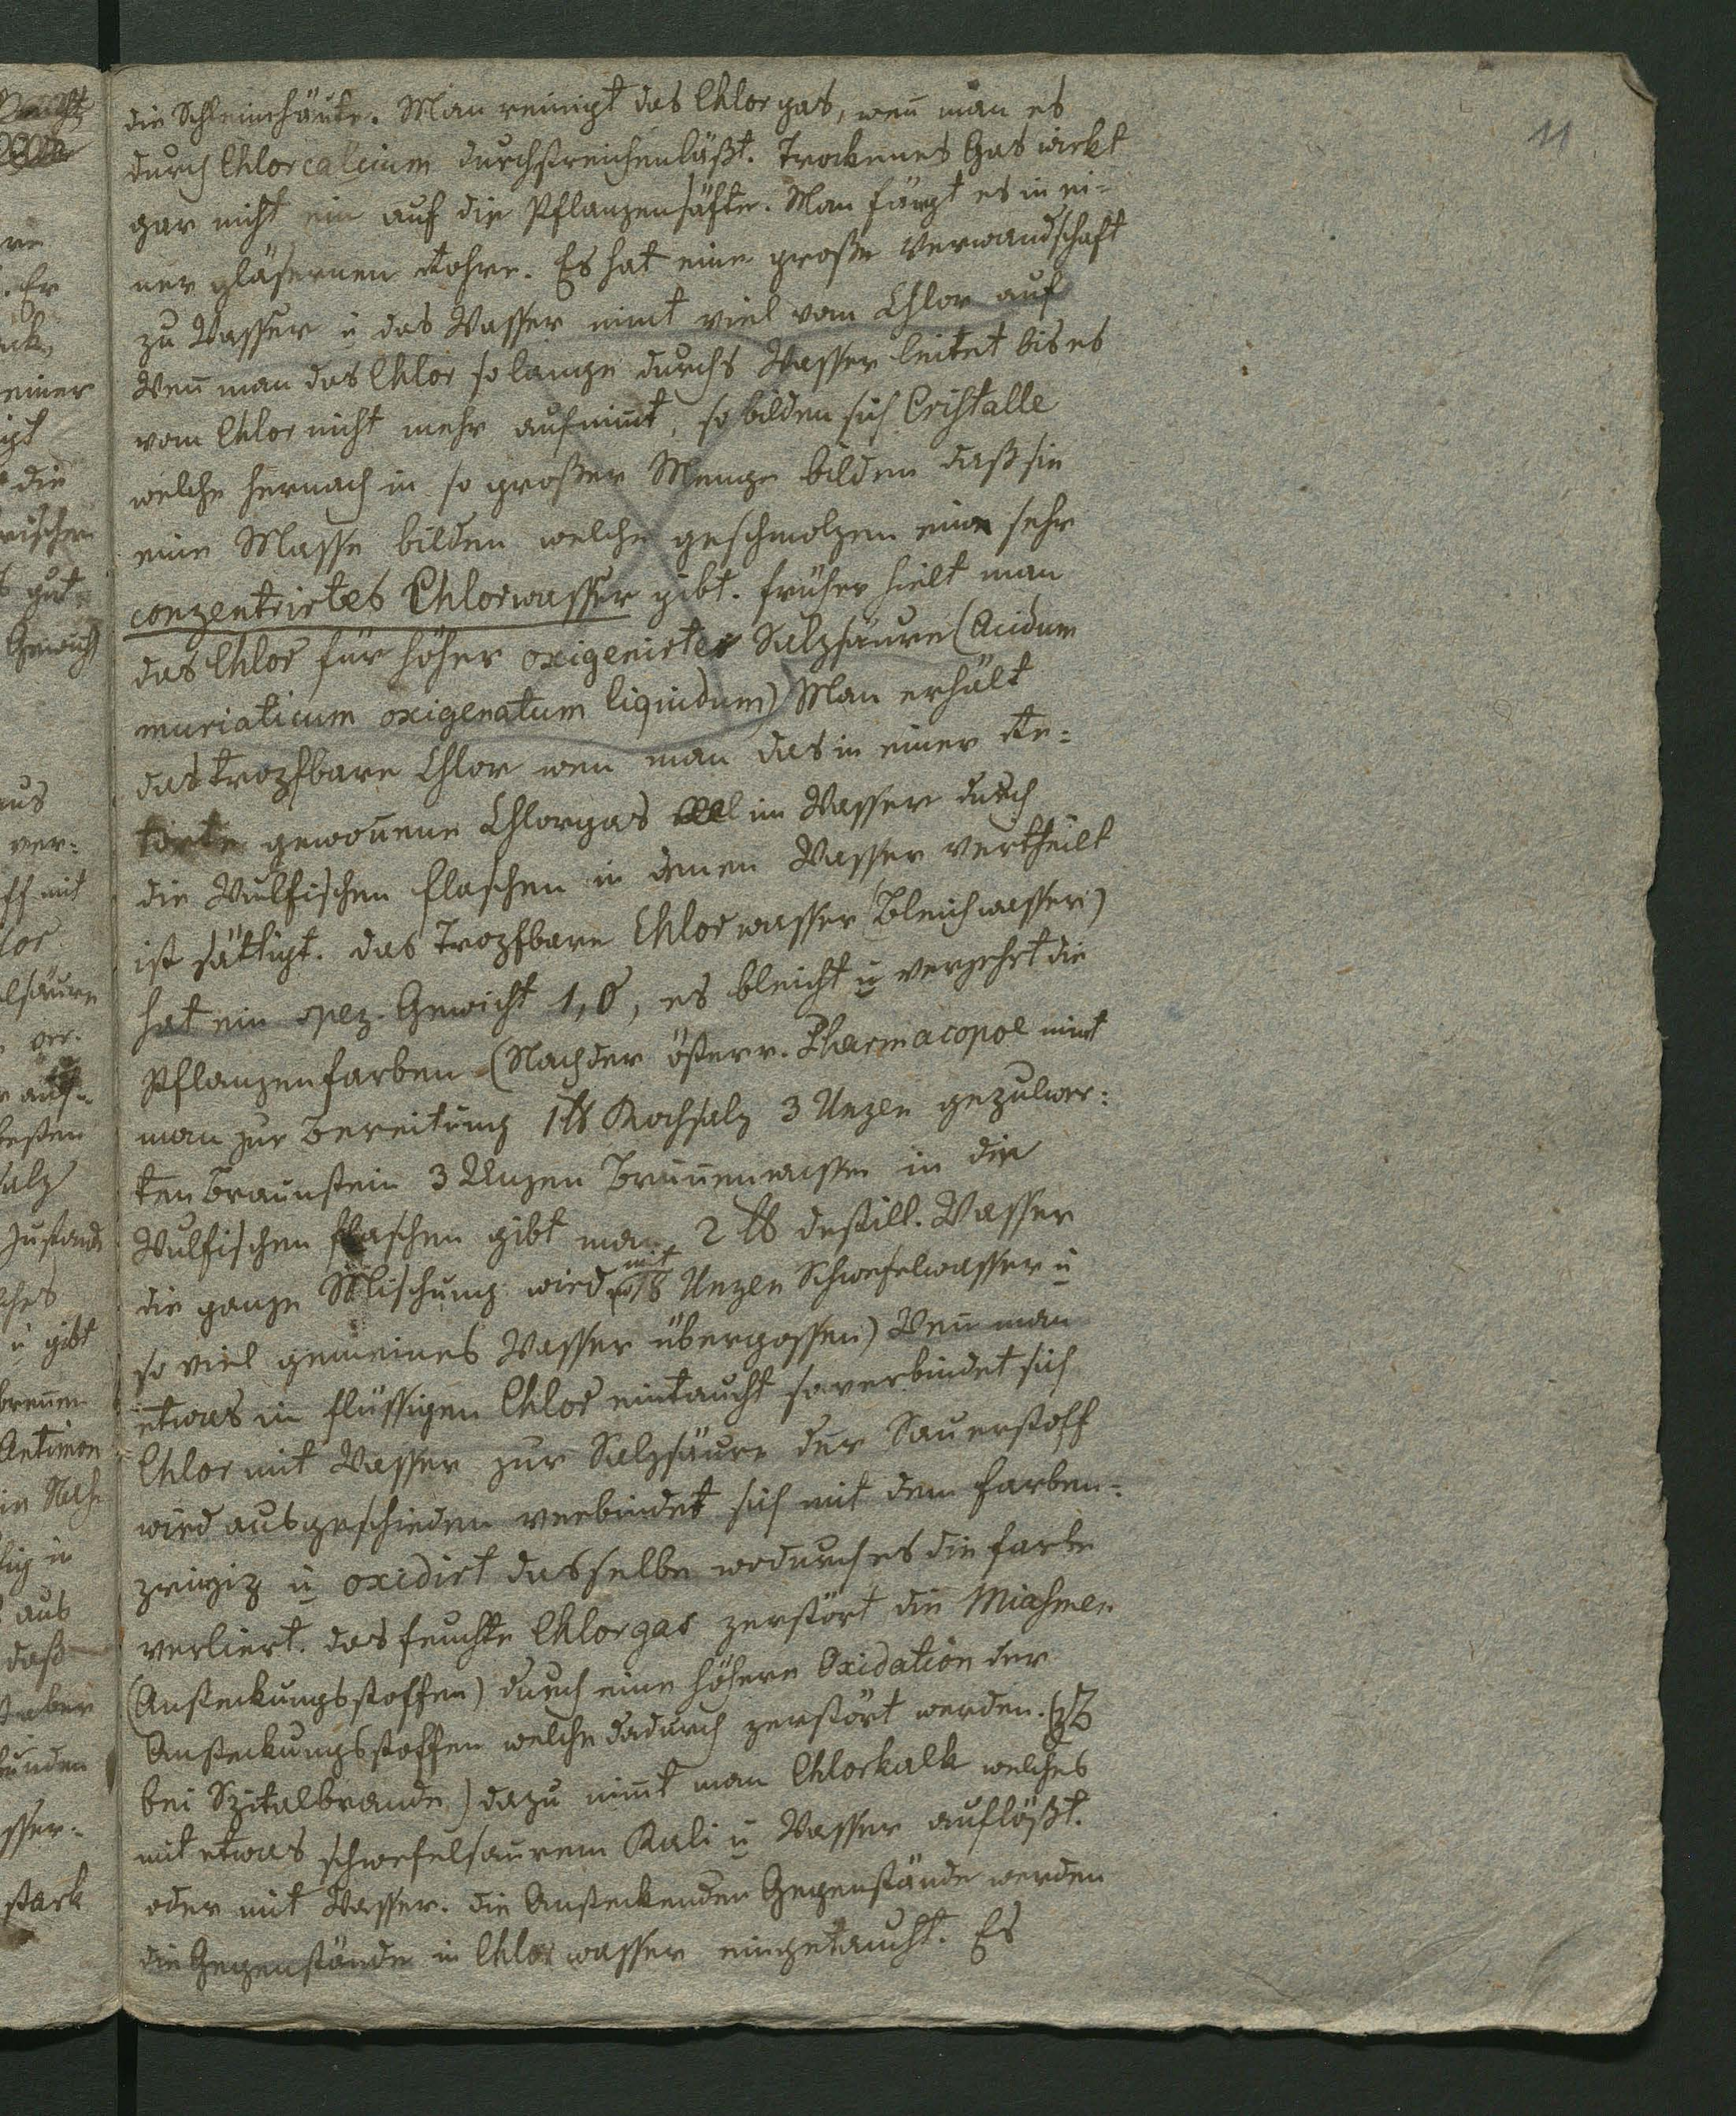 11
die Schleimhäute. Man reinigt das Chlorgas, weñ man es
durch Chlorcalcium durchstreichenläßt. Trockenes Gas wirkt
gar nicht ein auf die Pflanzensäfte. Man fängt es in ei-
ner gläsernen Rohre. Es hat eine große Verwandschaft
zu Wasser u das Wasser nimt viel vom Chlor auf
Weñ man das Chlor so lange durchs Wasser leitet bis es
vom Chlor nicht mehr aufnim̄t, so bilden sich Cristalle
welche hernach in so großer Menge bilden daß sie
eine Masse bilden welche geschmolzen ein sehr
conzentrirtes Chlorwasser gibt. früher hielt man
das Chlor für höher oxigenirte Salzsäure (Acidum
muriaticum oxigenatum liquidum) Man erhält
das tropfbare Chlor wen man das in einer Re-
torte gewoñene Chlorgas im Wasser durch
die Wulfischen flaschen in denen Wasser vertheilt
ist sättigt. das Tropfbare Chlorwasser (Bleichwasser)
hat ein spez. Gewicht 1,0, es bleicht u verzehrt die
Pflanzenfarben (Nach der österr. Pharmacopoe nimt
man zur Bereitung 1 ℔ Kochsalz 3 Unzen gepulver-
ten Braunstein 3 Unzen Bruñenwasser in die
Wulfischen flaschen gibt man 2 ℔ destill. Wasser
die ganze Mischung wird mit 18 Unzen Schwefelwasser u
so viel gemeines Wasser übergossen) Weñ man
etwas in flüssigen Chlor eintaucht so verbindet sich
Chlor mit Wasser zur Salzsäure der Sauerstoff
wird ausgeschieden verbindet sich mit dem farben-
u oxidirt dasselbe wodurch es die farbe
verliert. das feuchte Chlorgas zerstört die Miasmen
(Ansteckungsstoffen) durch eine höhere Oxidation der
Ansteckungsstoffen welche dadurch zerstört werden. (zB
bei Spitalbrande) dazu nim̄t man Chlorkalk welches
mit etwas schwefelsaurem Kali u Wasser auflößt.
oder mit Wasser. die Ansteckenden Gegenstände werden
die Gegenstände in Chlorwasser eingetaucht. Es